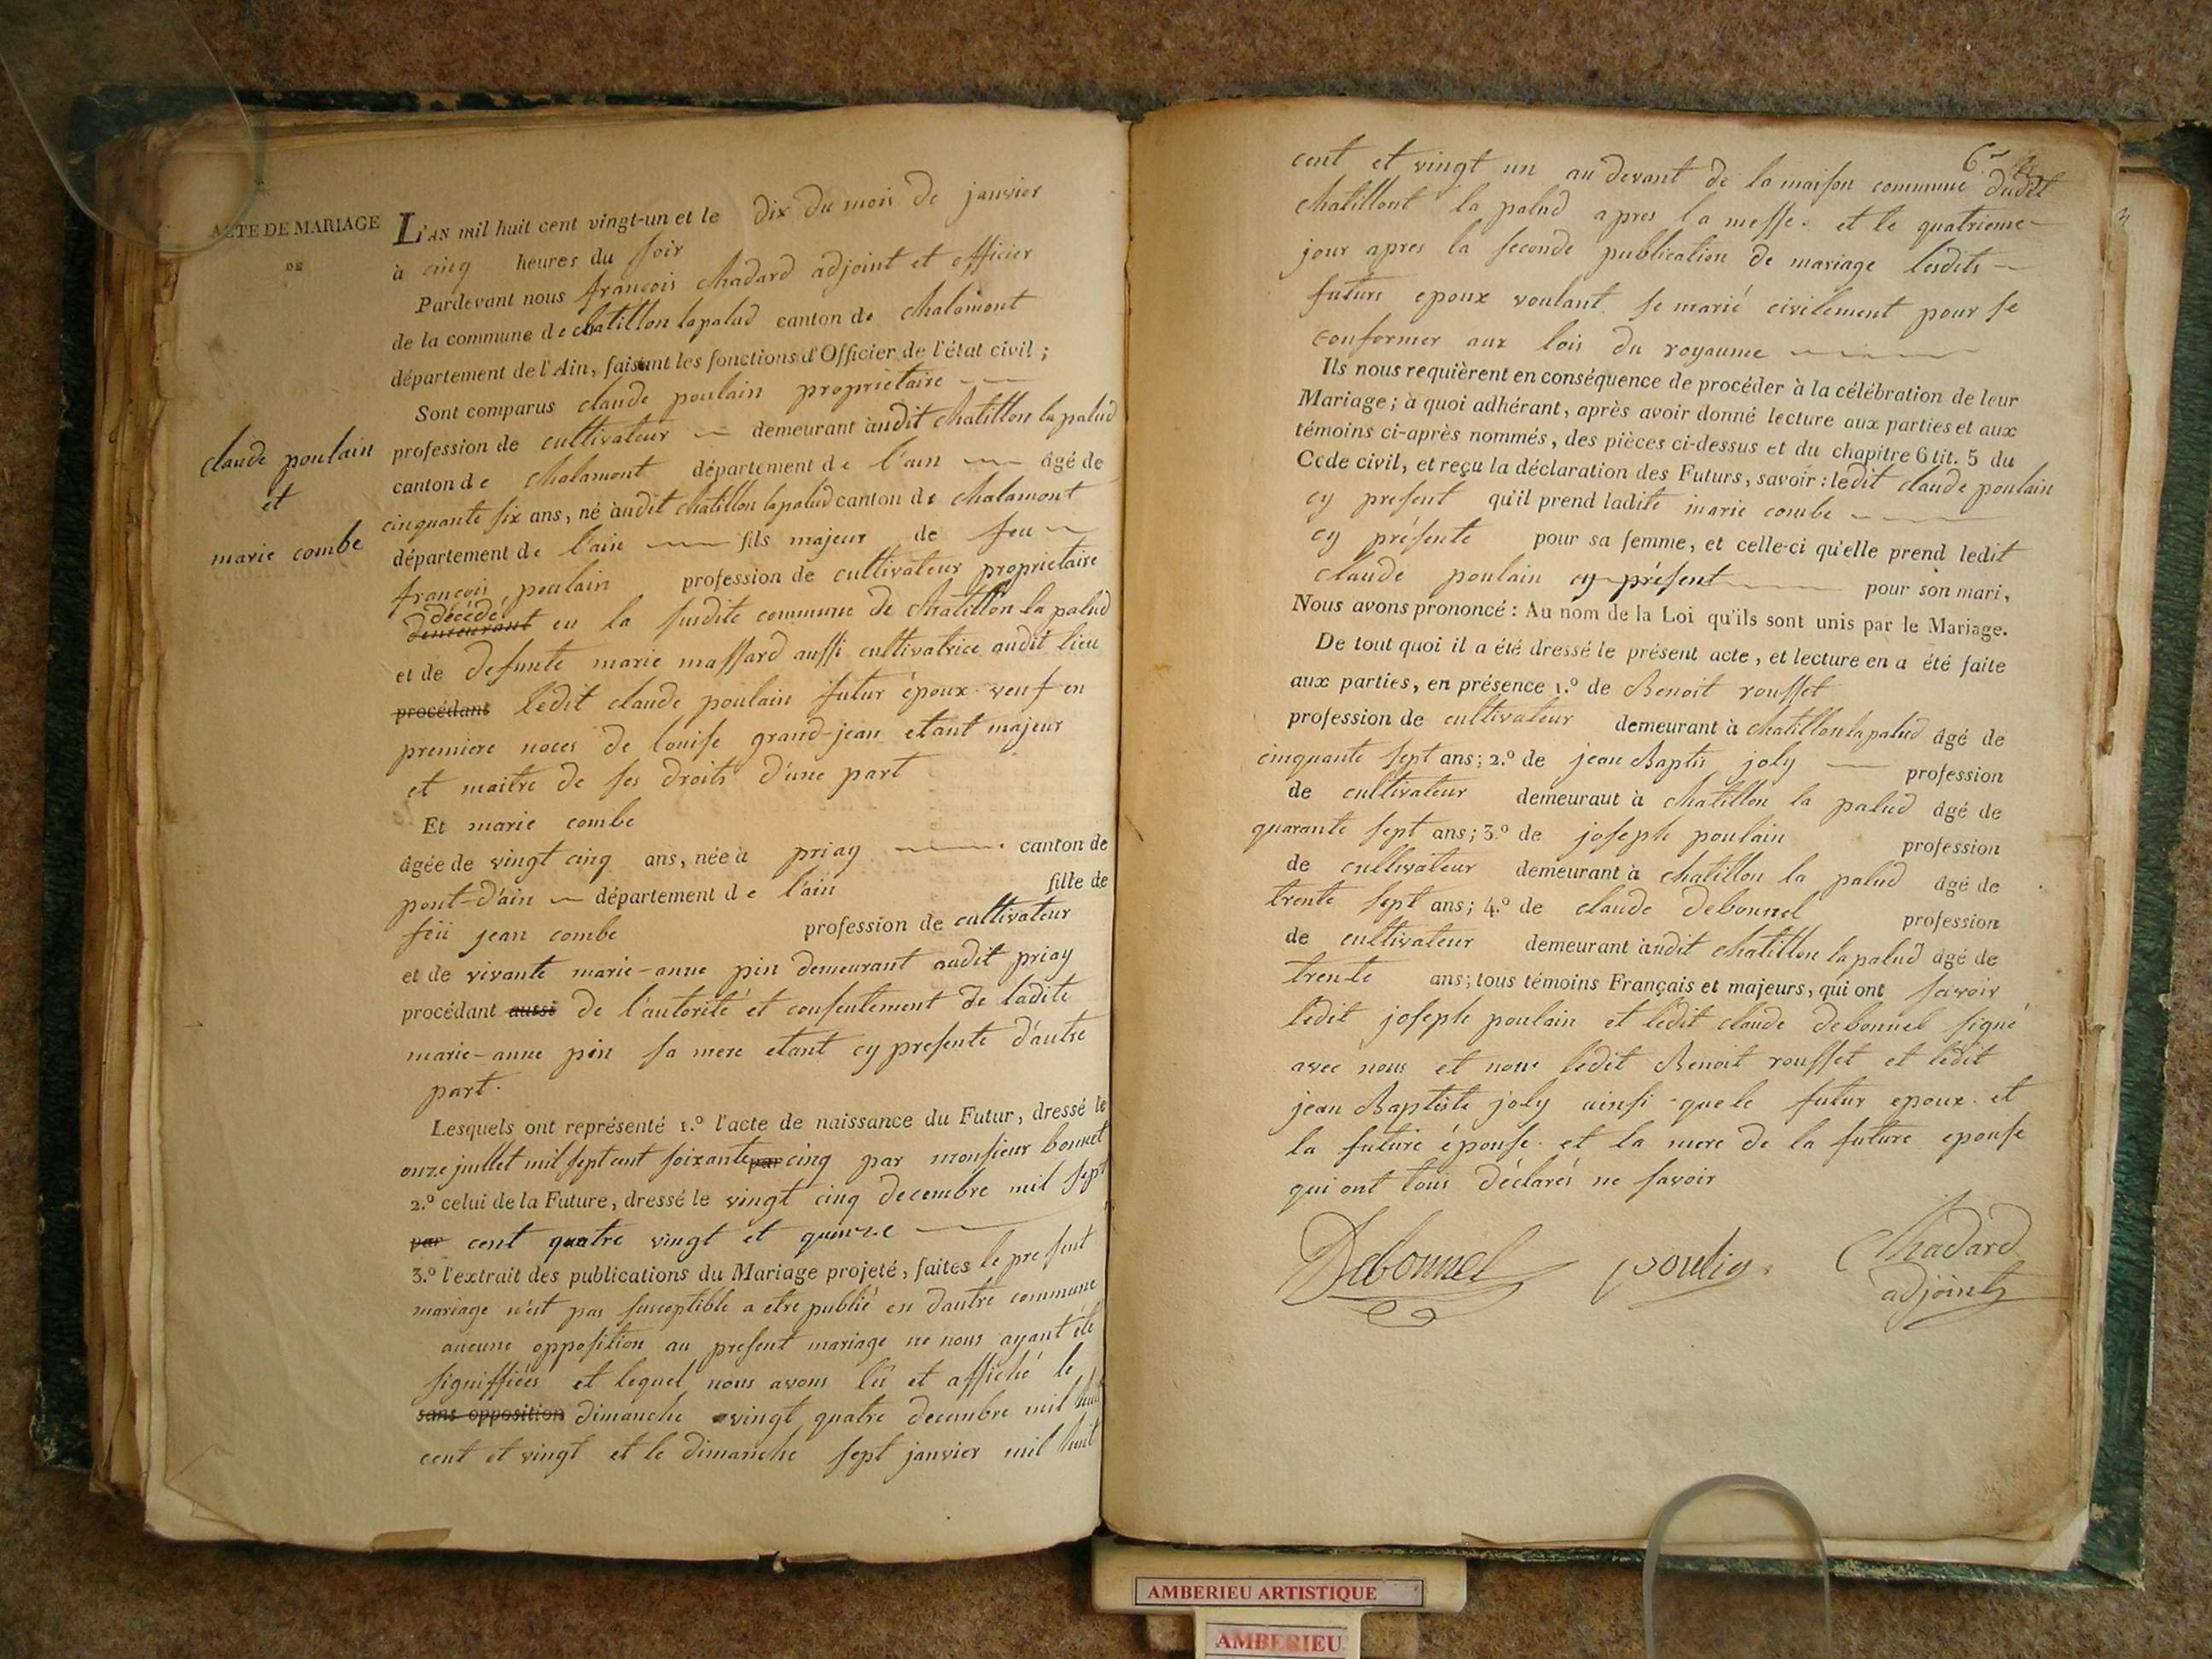 ACTE DE MARIAGE
DE
claude poulain
et
marie combe
L'AN mil huit cent vingt-un et le dix du mois de janvier
à cinq heures du soir
Pardevant nous françois chadard adjoint et officier
de la commune de chatillon lapalud canton de chalamont
département de l'Ain, faisant les fonctions d'Officier de l'état civil ;
Sont comparus claude poulain proprietaire
profession de cultivateur demeurant audit chatillon la palud
canton de chalamont département de l'ain âgé de
cinquante six ans, né audit chatillon lapalud canton de chalamont
département de l'ain fils majeur de feu
françois poulain profession de cultivateur proprietaire
décédé
demeurant en la susdite commune de chatillon la palud
et de defunte marie massard aussi cultivatrice audit lieu
procédant ledit claude poulain futur époux veuf en
premiere noces de louise grand-jean etant majeur
et maitre de ses droits d'une part
Et marie combe
âgée de vingt cinq ans, née à priay canton de
pont-d'ain département de l'ain fille de
feü jean combe profession de cultivateur
et de vivante marie-anne pin demeurant audit priay
procédant aussi de l'autorité et consentement de ladite
marie-anne pin sa mere etant cy presente d'autre
part.
Lesquels ont représenté 1.º l'acte de naissance du Futur, dressé le
onze juillet mil sept cent soixante par cinq par monsieur bonnet
2.º celui de la Future, dressé le vingt cinq decembre mil sept
par cent quatre vingt et quinze
3.º l'extrait des publications du Mariage projeté, faites le present
mariage n'est pas susceptible a etre publié en dautre commune
aucune opposition au present mariage ne nous ayant été
signiffiées et lequel nous avons lû et affiché le
sans opposition dimanche vingt quatre decembre mil huit
cent et vingt et le dimanche sept janvier mil huit
6
cent et vingt un au devant de la maison commune dudit
chatillont la palud apres la messe. et le quatrieme
jour apres la seconde publication de mariage lesdits
futurs epoux voulant se marié civilement pour se
conformer aux lois du royaume
Ils nous requièrent en conséquence de procéder à la célébration de leur
Mariage ; à quoi adhérant, après avoir donné lecture aux parties et aux
témoins ci-après nommés, des pièces ci-dessus et du chapitre 6 tit. 5 du
Code civil, et reçu la déclaration des Futurs, savoir : ledit claude poulain
cy present qu'il prend ladite marie combe
cy présente pour sa femme, et celle-ci qu'elle prend ledit
claude poulain cy présent pour son mari,
Nous avons prononcé : Au nom de la Loi qu'ils sont unis par le Mariage.
De tout quoi il a été dressé le présent acte, et lecture en a été faite
aux parties, en présence 1.º de Benoit rousset
profession de cultivateur demeurant à chatillon lapalud âgé de
cinquante sept ans ; 2.º de jean Baptis joly profession
de cultivateur demeurant à chatillon la palud âgé de
quarante sept ans ; 3.º de joseph poulain profession
de cultivateur demeurant à chatillon la palud âgé de
trente sept ans ; 4.º de claude debonnel profession
de cultivateur demeurant audit chatillon la palud âgé de
trente ans ; tous témoins Français et majeurs, qui ont savoir
ledit joseph poulain et ledit claude debonnel signé
avec nous et non ledit Benoit rousset et ledit
jean Baptiste joly ainsi que le futur epoux et
la future épouse et la mere de la future epouse
qui ont tous déclarés ne savoir
Debonnel poulin chadard
adjoint
AMBERIEU ARTISTIQUE
AMBERIEU